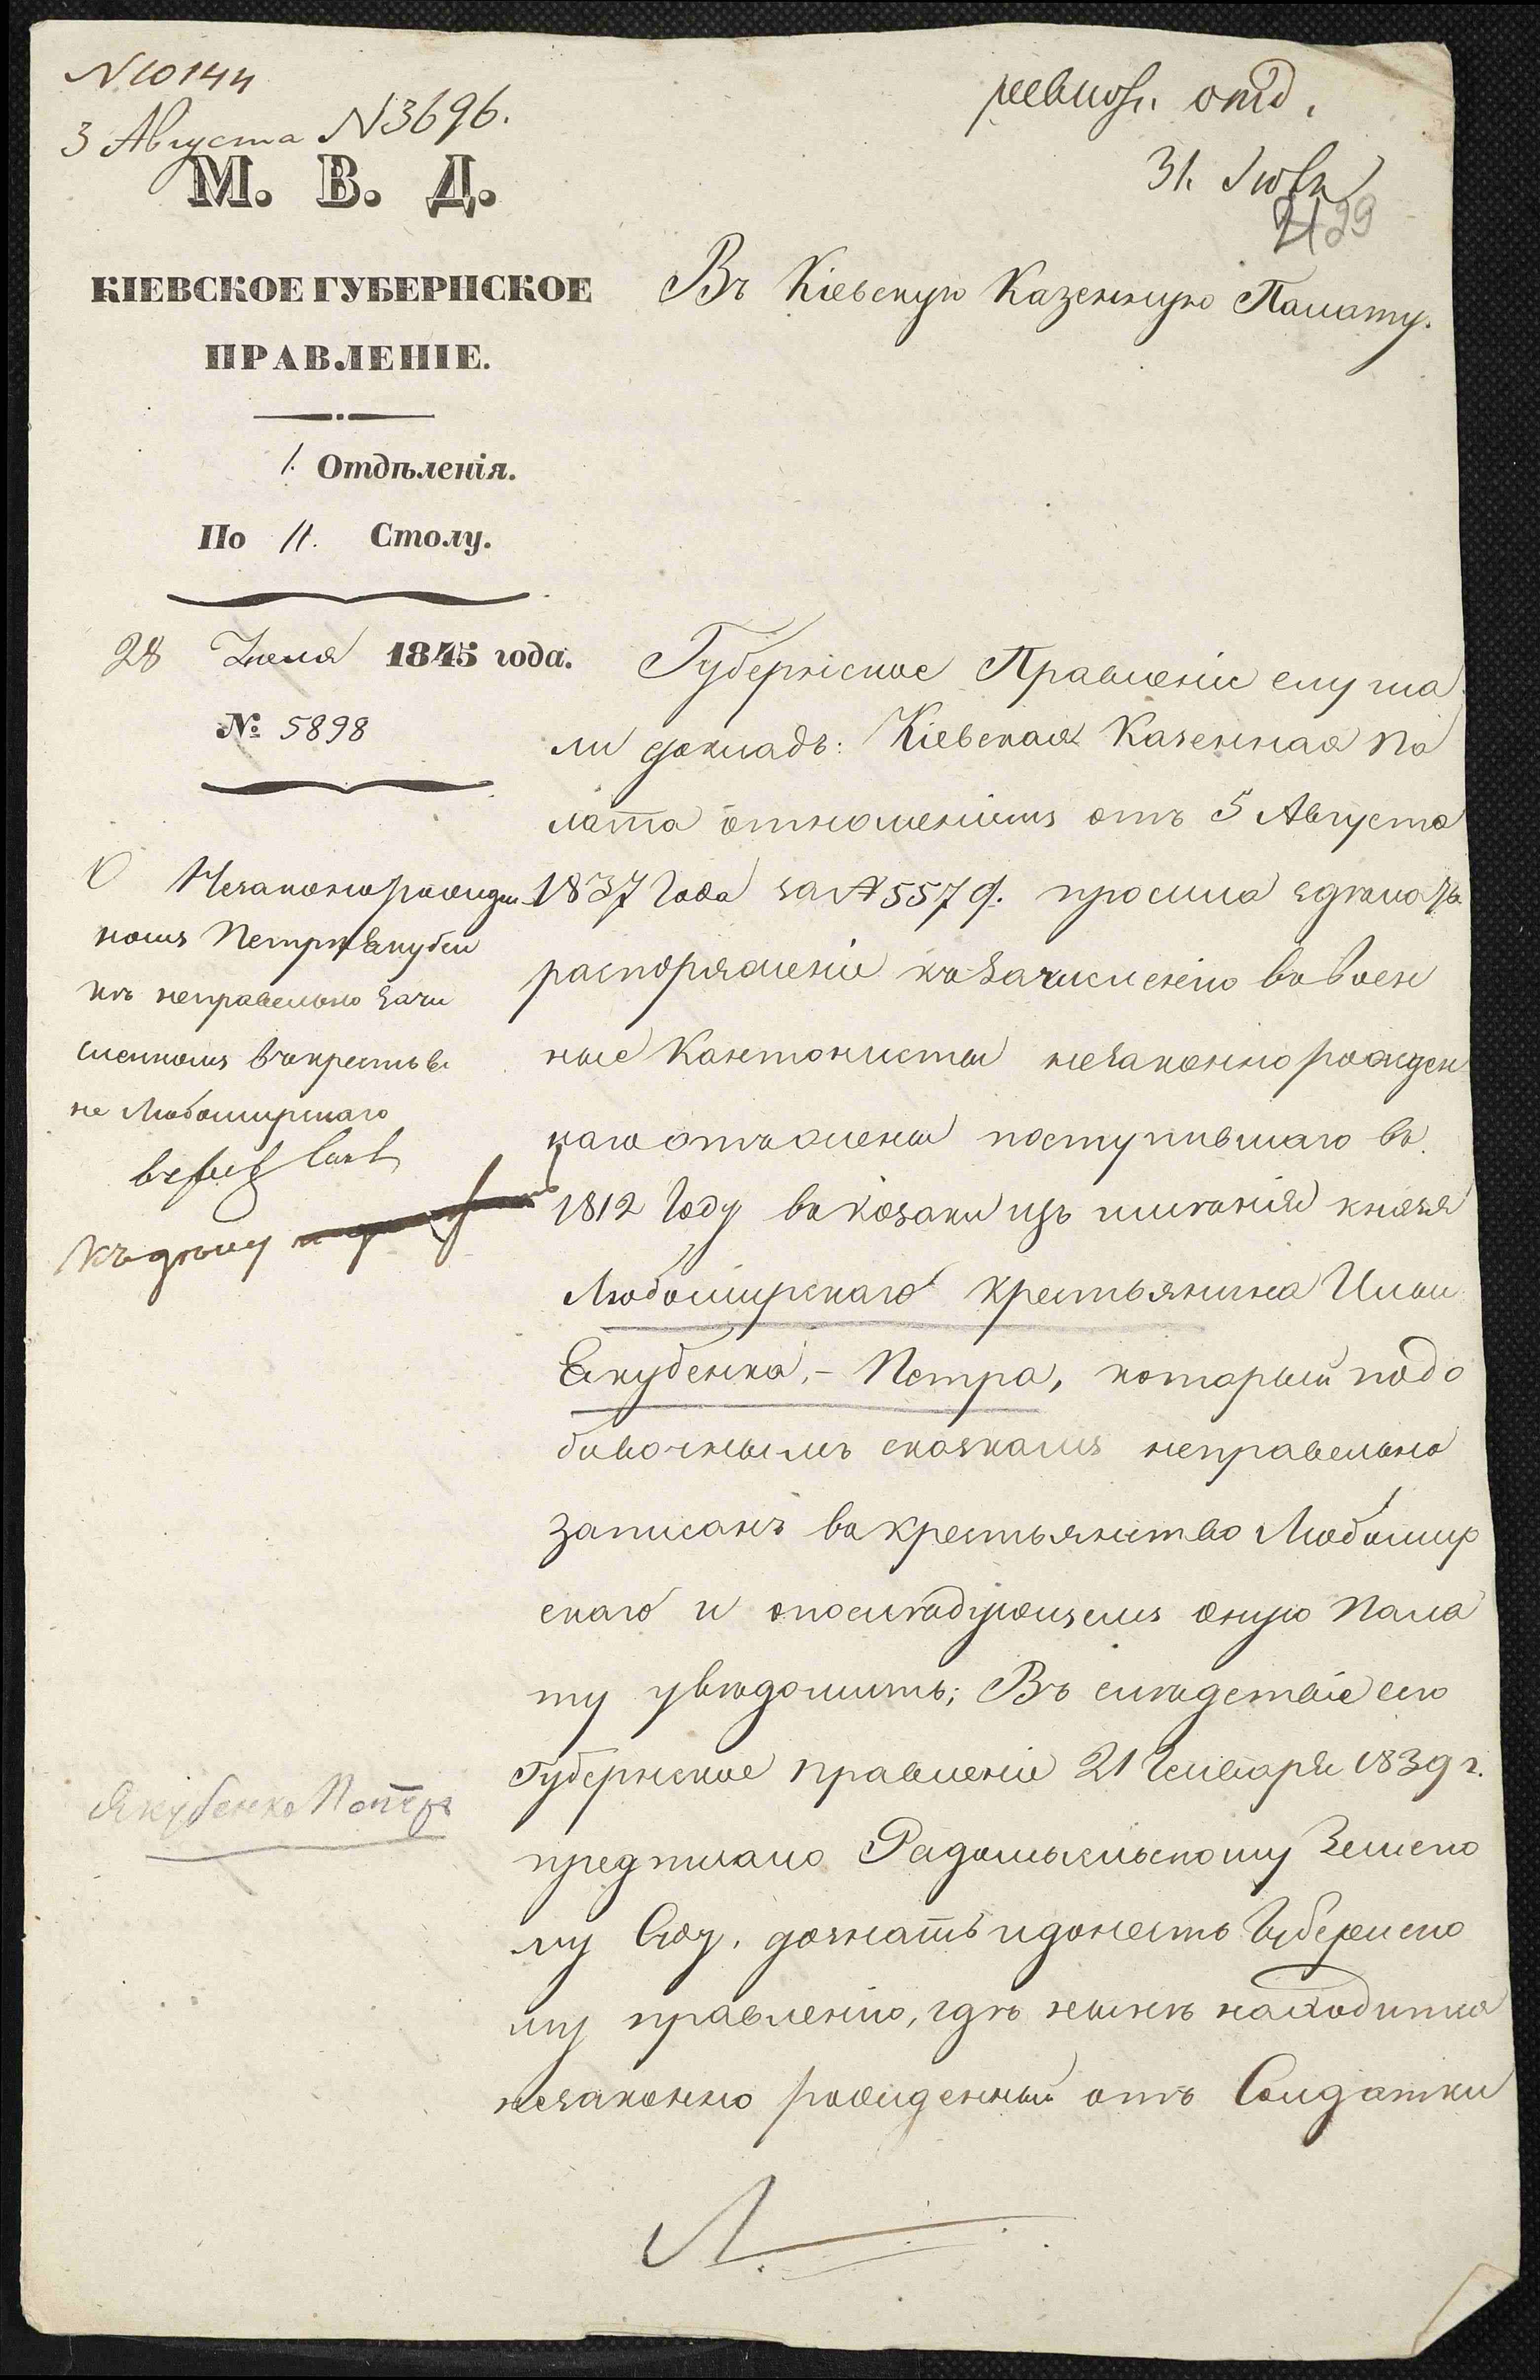 N10144
3 Августа N3696.
М. В. Д.
КІЕВСКОЕ ГУБЕРНСКОЕ
ПРАВЛЕНІЕ.
1. Отдѣленія.
По II. Столу.
28 Іюля 1845 года.
№ 5898
О Незаконорожден
номъ Петрѣ Якубен
кѣ неправельно зачи
сленномъ въ крестьяне
Любомирскаго
къ дѣлу
Якубенко Петръ
ревизс. отд.
31. Іюля
29
Въ Кіевскую Казенную Палату.
Губернское Правленіе слуша
ли докладъ: Кіевская Казенная Па
лата отношеніемъ отъ 5 Августа
1837 Года за № 5579. просила сдѣлать
распоряженіе къ зачисленію въ воен
ные Кантонисты незаконнорожден
наго отъ жены поступившаго въ
1812 Году въ козаки изъ имѣнія князя
Любомирскаго крестьянина Ильи
Якубенка,- Петра, который по до
бавочнымъ сказкамъ неправельно
записанъ въ крестьянство Любомир
скаго и о послѣдующемъ оную Пала
ту увѣдомить; Въ слѣдствіе сего
Губернское правленіе 21 Генваря 1839 г.
предписало Радомысльскому Земско
му Суду, дознать и донесть Губернско
му правленію, гдѣ нынѣ находится
незаконно рожденный отъ Солдатки